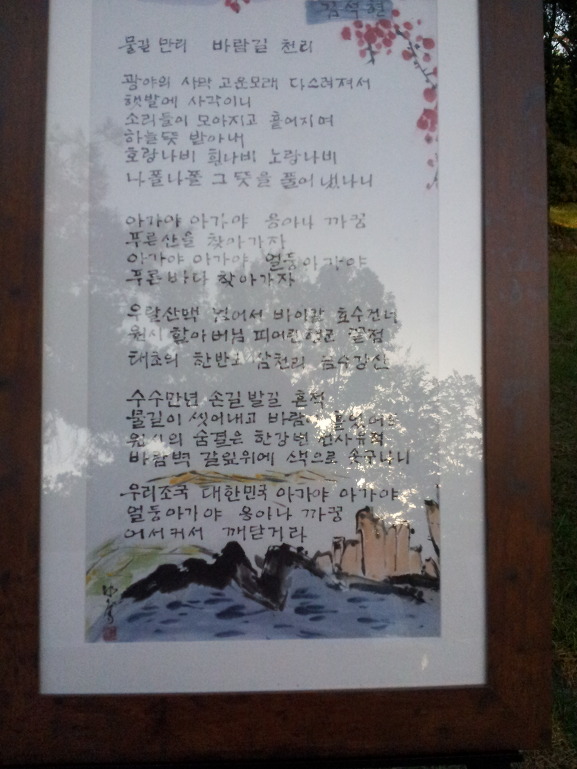 김석현
물길 만리 바람길 천리
광야의 사막 고운모래 다스려져서
햇발에 사각이니
소리들이 모아지고 흩어지며
하늘뜻 받아내
호랑나비 흰나비 노랑나비
나폴나폴 그 뜻을 풀어 냈나니
아가야 아가야 옹아나 까꿍
푸른산을 찾아가자
아가야 아가야 얼둥아가야
푸른바다 찾아가자
우랄산맥 넘어서 바이칼 호수건너
원시 할아버님 피어린행로
태초의 한반도 삼천리 금수강산
수수만년 손길발길 흔적
물길이 씻어내고
숨결은 한강변 선사유적
바람벽 갈잎위에
우리조국 대한민국 아가야 아가야
얼둥아가야 옹아나 까꿍
어서커서 깨닫거라